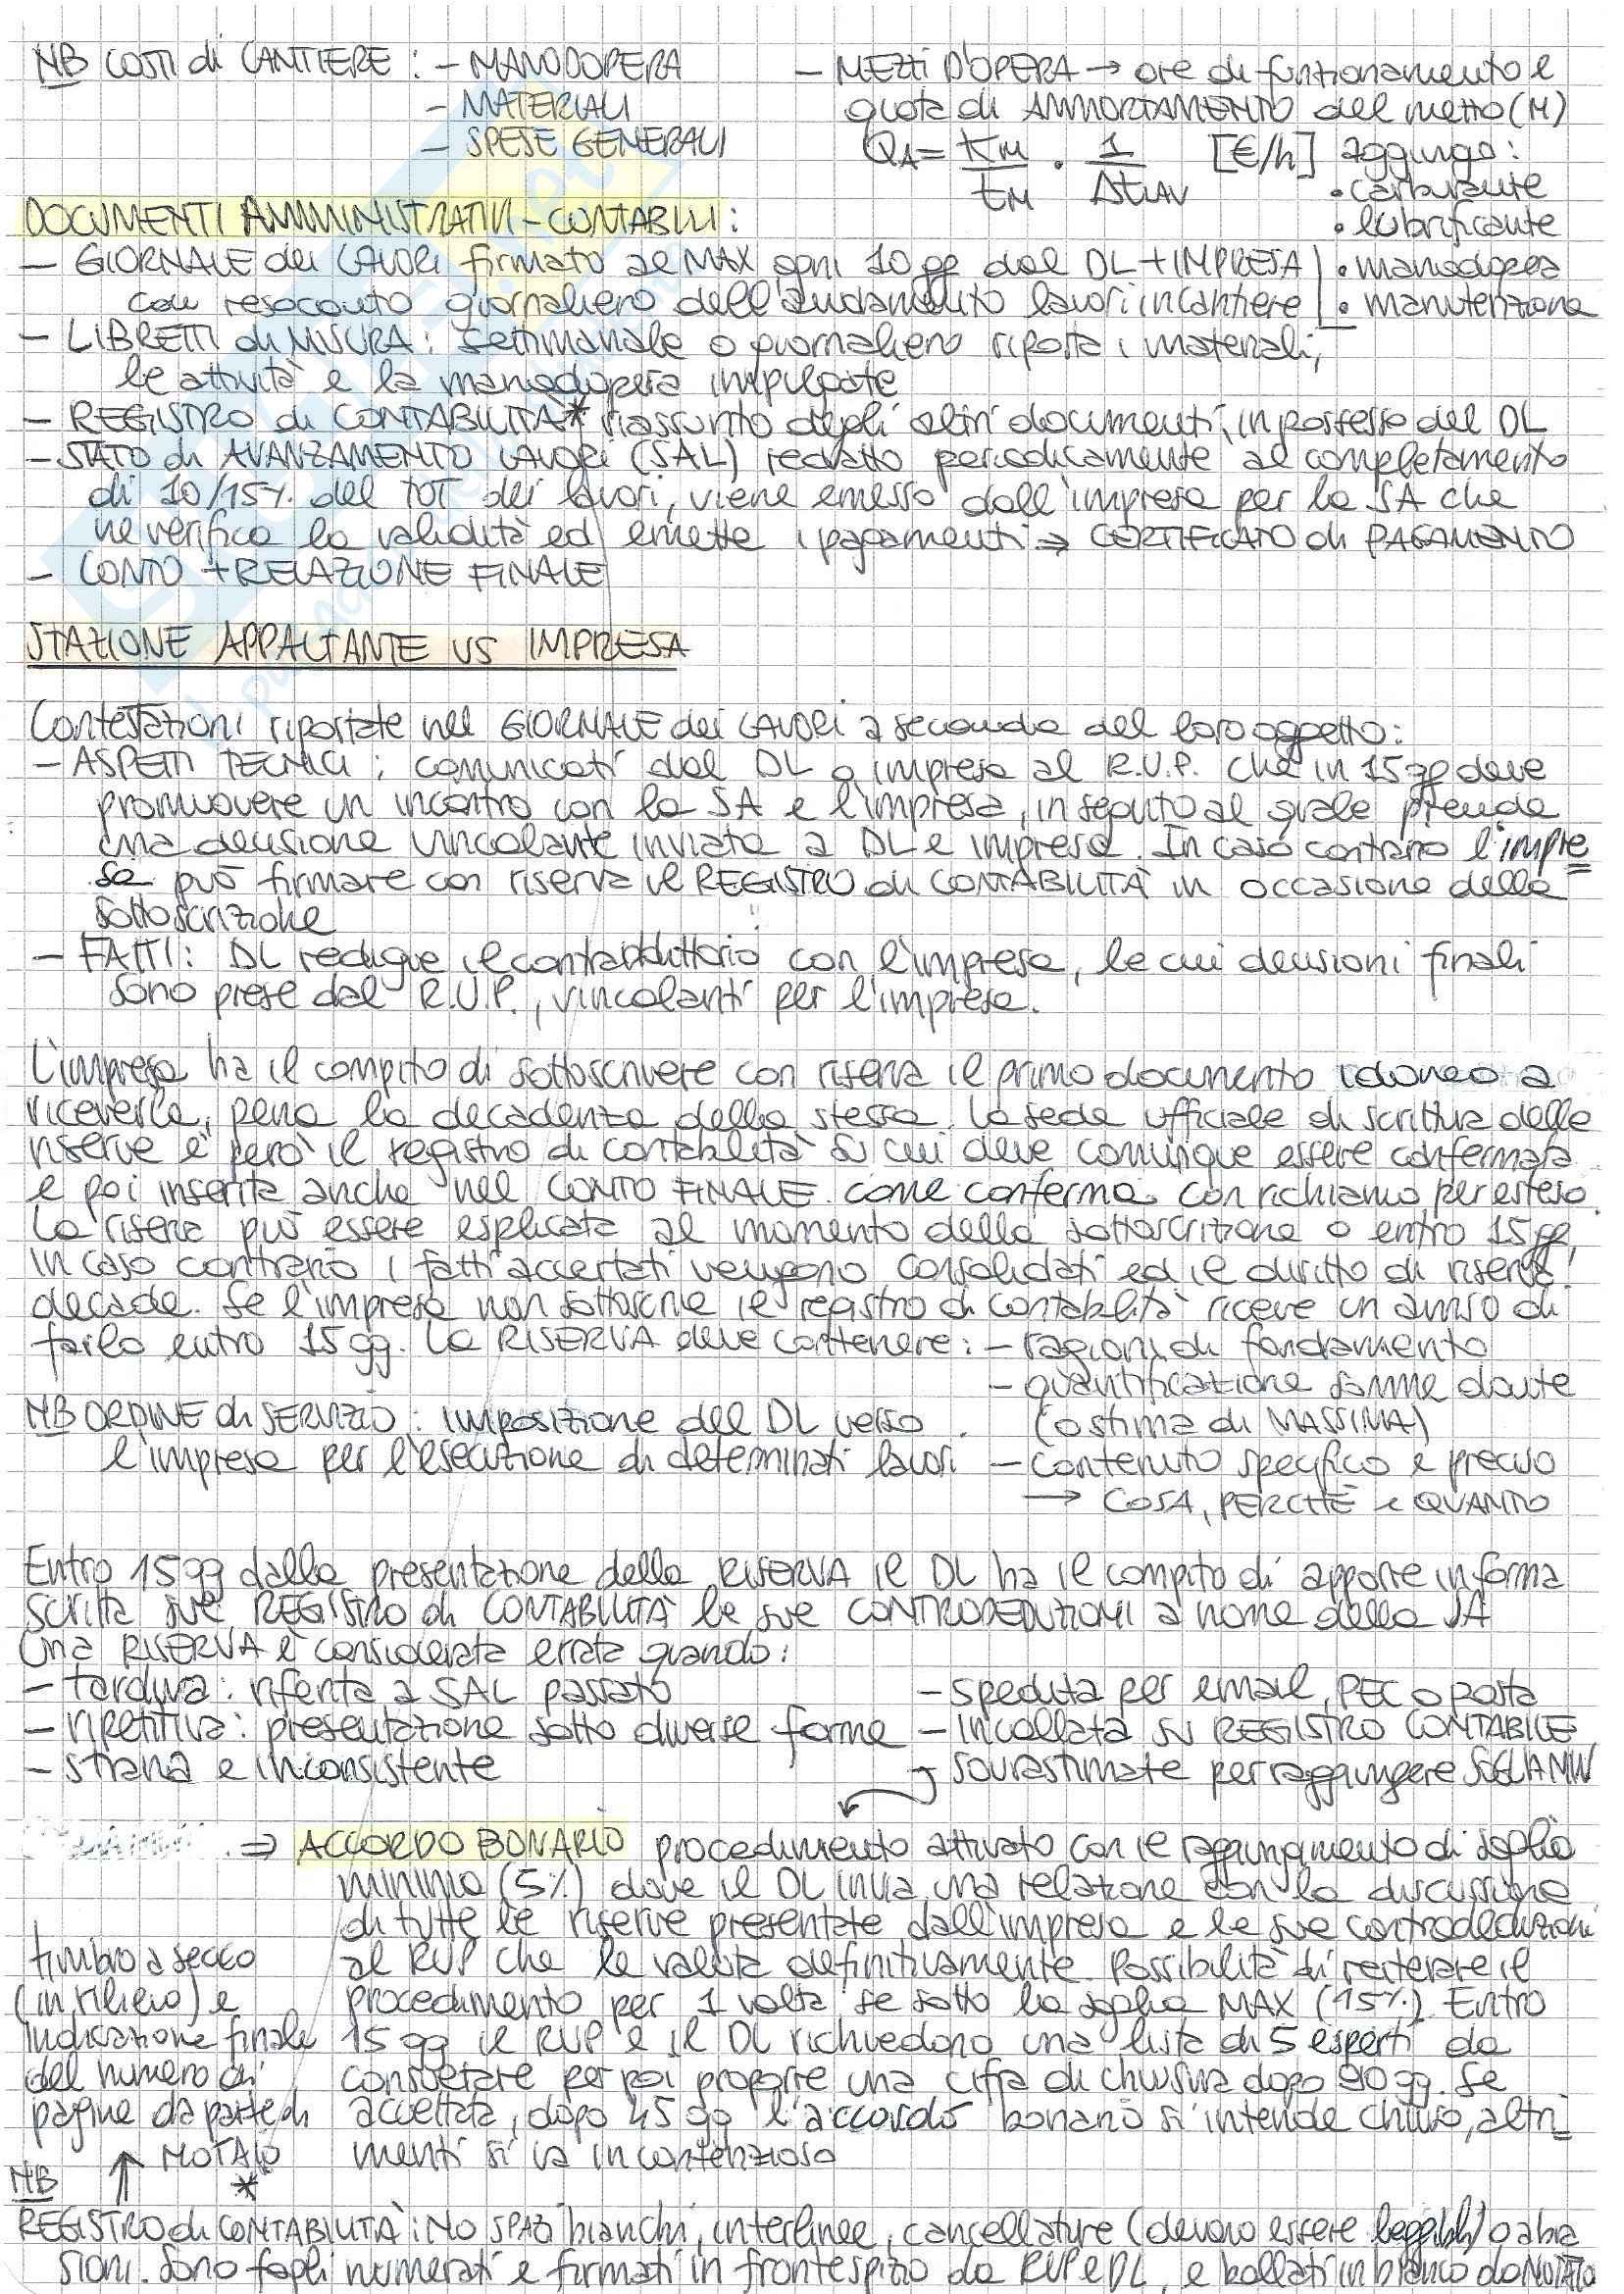 NB COSTI di CANTIERE : - MANODOPERA
- MATERIALI
- SPESE GENERALI
- MEZZI D'OPERA → ore di funzionamento e
quota di AMMORTAMENTO del mezzo (M)
QA = KM/tM · 1/ΔtLAV [€/h] aggiungo :
• carburante
• lubrificante
• manodopera
• manutenzione
DOCUMENTI AMMINISTRATIVI - CONTABILI :
- GIORNALE dei LAVORI firmato al MAX ogni 10 gg dal DL + IMPRESA
con resoconto giornaliero dell'andamento lavori in cantiere
- LIBRETTI di MISURA : settimanale o giornaliero riporta i materiali,
le attività e la manodopera impiegate
- REGISTRO di CONTABILITÀ* riassunto degli altri documenti, in possesso del DL
- STATO di AVANZAMENTO LAVORI (SAL) redatto periodicamente al completamento
di 10/15% del TOT dei lavori, viene emesso dall'impresa per la SA che
ne verifica la validità ed emette i pagamenti → CERTIFICATO di PAGAMENTO
- CONTO + RELAZIONE FINALE
STAZIONE APPALTANTE VS IMPRESA
Contestazioni riportate nel GIORNALE dei LAVORI a seconda del loro oggetto :
- ASPETTI TECNICI : comunicati dal DL o impresa al R.U.P. che in 15 gg deve
promuovere un incontro con la SA e l'impresa, in seguito al quale prende
una decisione vincolante inviata a DL e impresa. In caso contrario l'impre=
sa può firmare con riserva il REGISTRO di CONTABILITÀ in occasione della
sottoscrizione
- FATTI : DL redigue il contraddittorio con l'impresa, le cui decisioni finali
sono prese dal R.U.P., vincolanti per l'impresa.
L'impresa ha il compito di sottoscrivere con riserva il primo documento idoneo a
riceverla, pena la decadenza della stessa. La sede ufficiale di scrittura delle
riserve è però il registro di contabilità su cui deve comunque essere confermata
e poi inserita anche nel CONTO FINALE come conferma con richiamo per esteso.
La riserva può essere esplicata al momento della sottoscrizione o entro 15 gg,
in caso contrario i fatti accertati vengono consolidati ed il diritto di riserva
decade. Se l'impresa non sottoscrive il registro di contabilità riceve un avviso di
farlo entro 15 gg. La RISERVA deve contenere : - ragioni di fondamento
- quantificazione somme dovute
(o stima di MASSIMA)
- contenuto specifico e preciso
→ COSA, PERCHÈ e QUANTO
NB ORDINE di SERVIZIO : imposizione del DL verso
l'impresa per l'esecuzione di determinati lavori
Entro 15 gg dalla presentazione della RISERVA il DL ha il compito di apporre in forma
scritta sul REGISTRO di CONTABILITÀ le sue CONTRODEDUZIONI a nome della SA
Una RISERVA è considerata errata quando :
- tardiva : riferita a SAL passato
- ripetitiva : presentazione sotto diverse forme
- strana e inconsistente
- spedita per email, PEC o posta
- incollata su REGISTRO CONTABILE
- sovrastimate per raggiungere SOGLIA MIN
⇒ ACCORDO BONARIO procedimento attivato con il raggiungimento di soglia
minima (5%) dove il DL invia una relazione con la discussione
di tutte le riserve presentate dall'impresa e le sue controdeduzioni
al RUP che le valuta definitivamente. Possibilità di reiterare il
procedimento per 1 volta se sotto la soglia MAX (15%). Entro
15 gg il RUP e il DL richiedono una lista di 5 esperti da
consultare per poi proporre una cifra di chiusura dopo 90 gg. Se
accettata, dopo 45 gg l'accordo bonario si intende chiuso, altri=
menti si va in contenzioso
timbro a secco
(in rilievo) e
indicazione finale
del numero di
pagine da parte di
↑ NOTAIO
NB *
REGISTRO di CONTABILITÀ : NO SPAZI bianchi, interlinee, cancellature (devono essere leggibili) o abra
sioni. Sono fogli numerati e firmati in frontespizio da RUP e DL, e bollati in bianco da NOTAIO